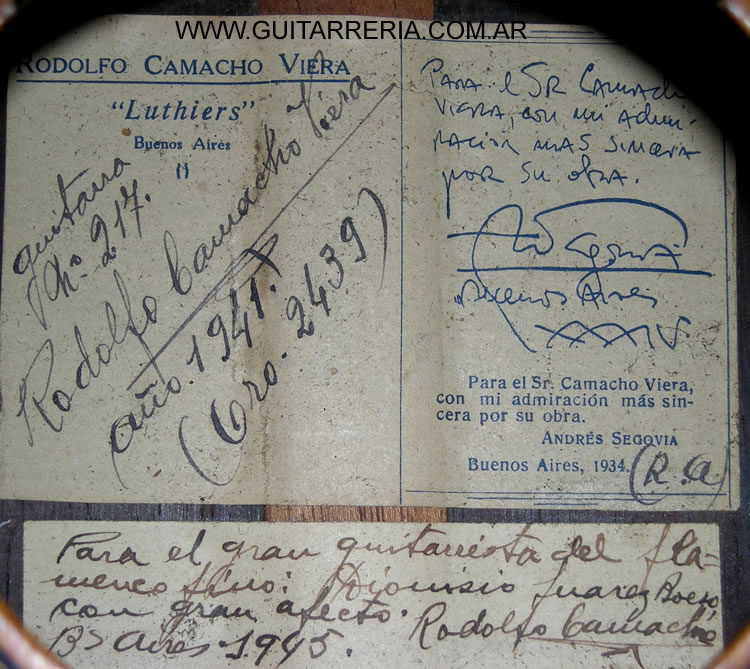 WWW.GUITARRERIA.COM.AR
RODOLFO CAMACHO VIERA
"Luthiers"
Buenos Aires
guitarra
Nº 217.
Rodolfo Camacho Viera
año. 1941.
(Oro. 2439)
PARA el SR CAMACHO
VIERA, CON mi ADMI-
RACION MAS SINCERA
POR SU OBRA.
Buenos Aires
XXXIV.
Para el Sr. Camacho Viera,
con mi admiración más sin-
cera por su obra.
ANDRÉS SEGOVIA
Buenos Aires, 1934.
(R. A)
Para el gran guitarrista del fla-
menco fino: Dionisio Juarez
con gran afecto. Rodolfo Camacho
Bs Aires. 1945.